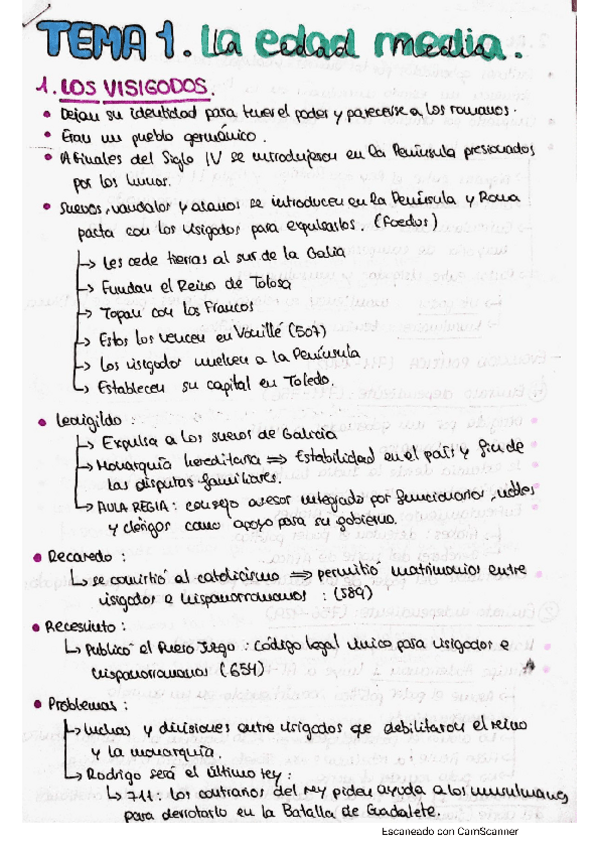 TEMA 1. La edad media.
1. LOS VISIGODOS.
• Dejan su identidad para tener el poder y parecerse a los romanos.
• Eran un pueblo germánico.
• A finales del Siglo IV se introdujeron en la Península presionados
por los hunos.
• Suevos, vandalos y alanos se introducen en la Península y Roma
pacta con los visigodos para expulsarlos. (Foedus)
↳ Les cede tierras al sur de la Galia
↳ Fundan el Reino de Tolosa
↳ Topan con los Francos
↳ Estos los vencen en Vouillé (507)
↳ Los visigodos vuelven a la Península
↳ Establecen su capital en Toledo.
• Leovigildo :
↳ Expulsa a los suevos de Galicia
↳ Monarquía hereditaria ⇒ Estabilidad en el país y fin de
las disputas familiares.
↳ AULA REGIA: consejo asesor integrado por funcionarios, nobles
y clérigos como apoyo para su gobierno.
• Recaredo :
↳ se convirtió al catolicismo ⇒ permitió matrimonios entre
visigodos e hispanorromanos : (589)
• Recesvinto :
↳ Publicó el Fuero Juzgo : código legal único para visigodos e
hispanorromanos (654)
• Problemas :
↳ luchas y divisiones entre visigodos que debilitaron el reino
y la monarquía.
↳ Rodrigo será el último rey :
↳ 711: los contrarios del rey piden ayuda a los musulmanes
para derrotarlo en la Batalla de Guadalete.
Escaneado con CamScanner